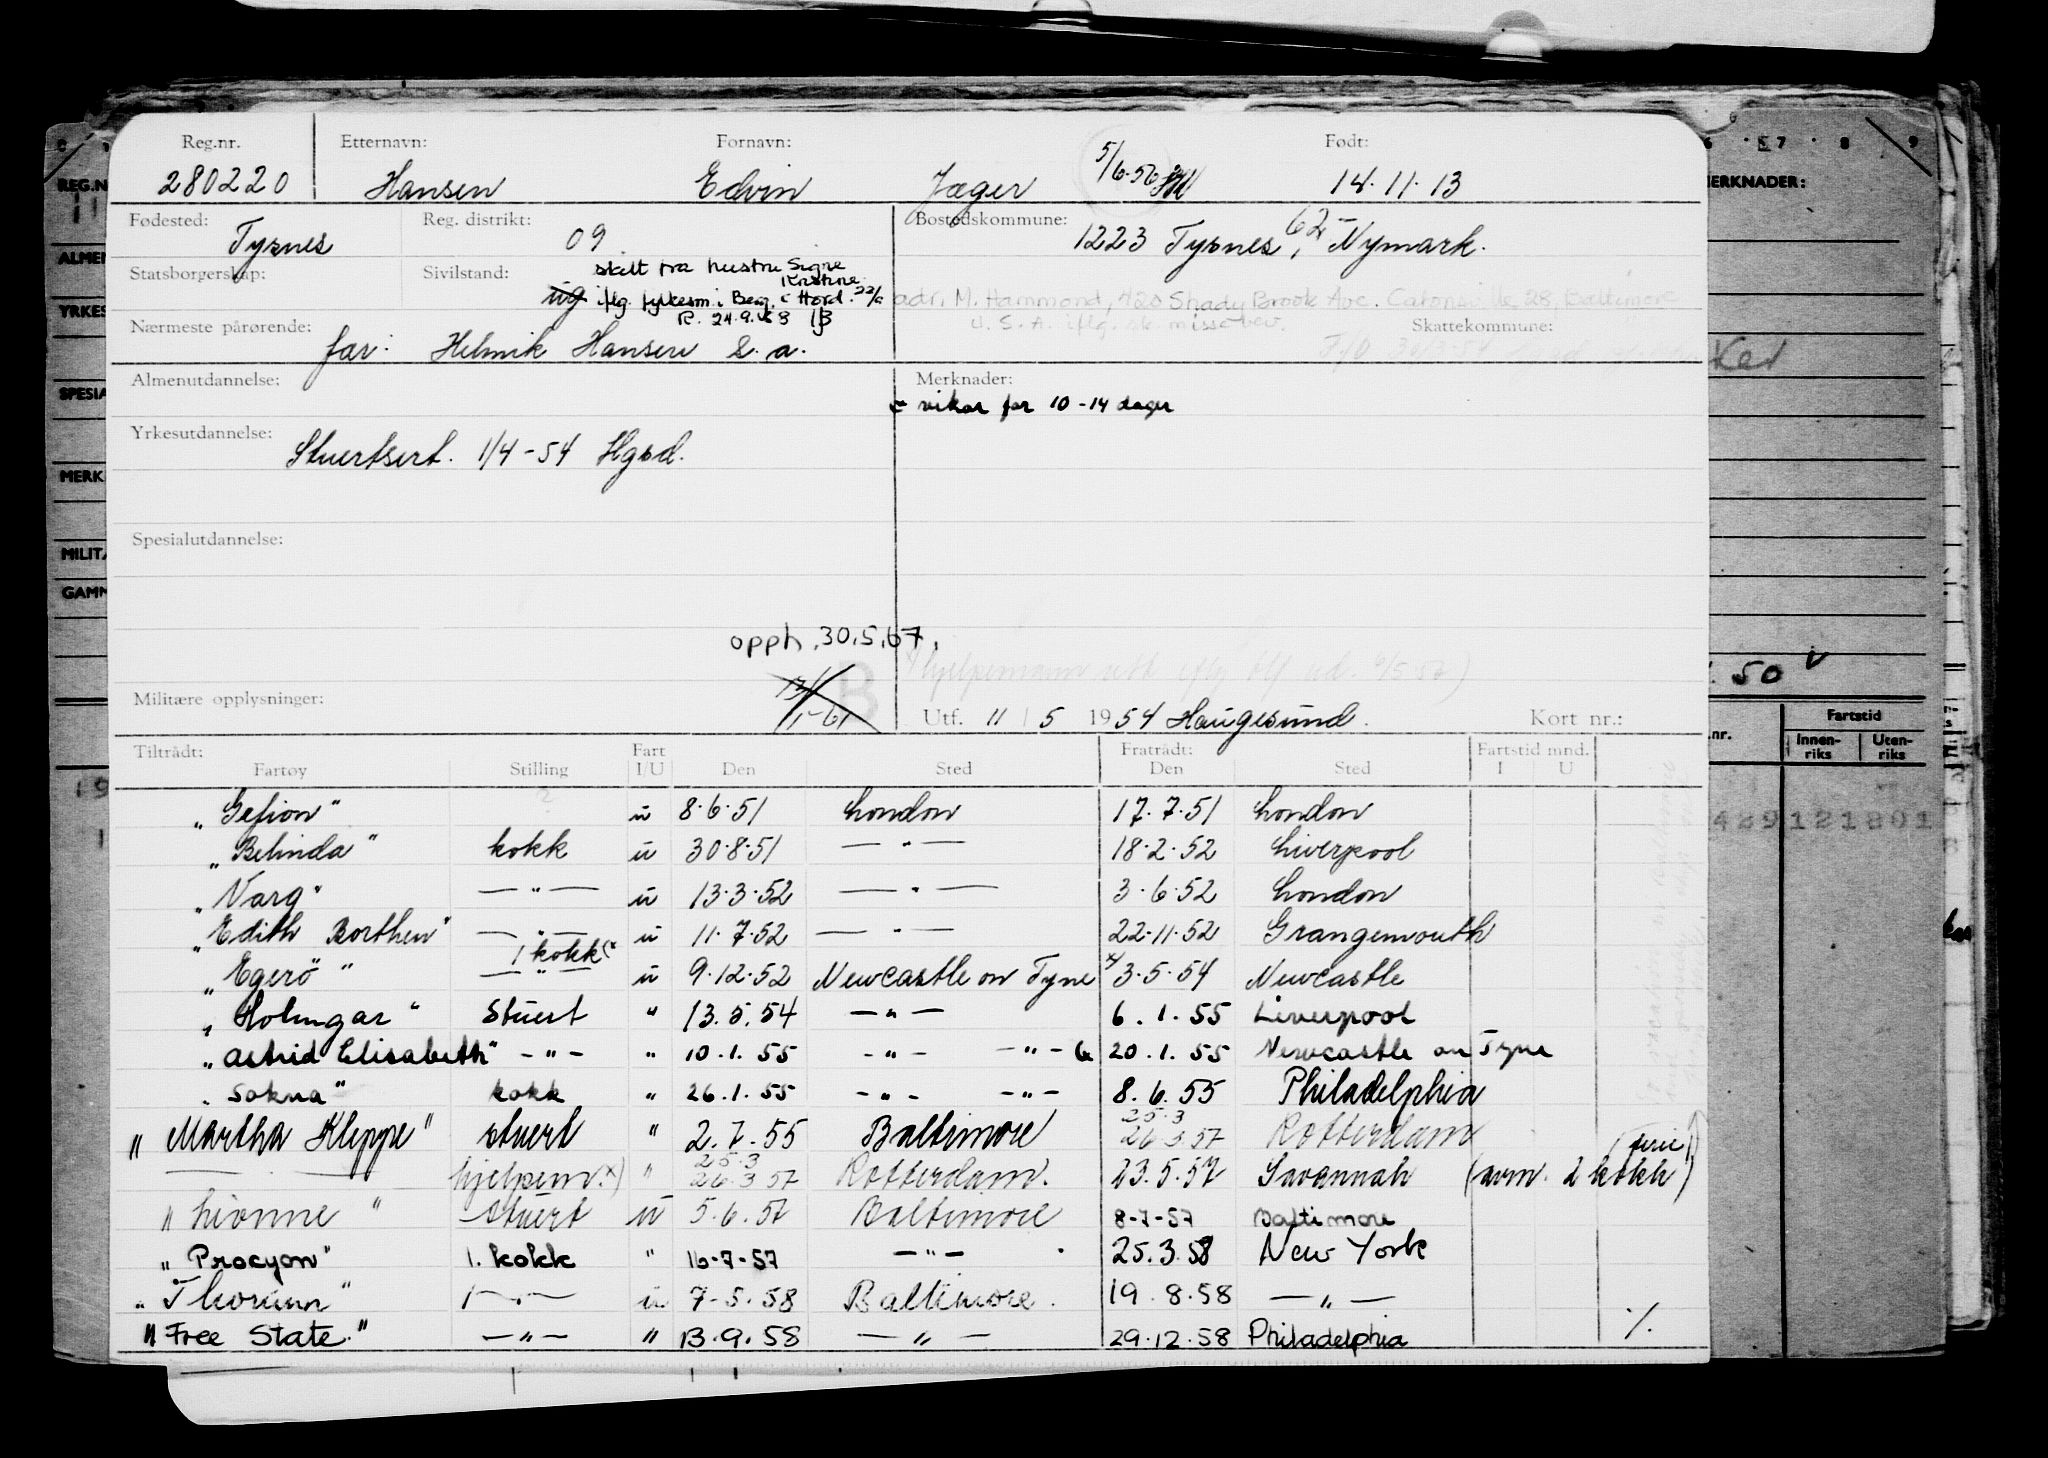 Reg.nr. Etternavn: Fornavn: Født:
280220 Hansen Edvin Jæger 5/6.56 14.11.13
Fødested: Tysnes Reg. distrikt: 09 Bostedskommune: 1223 Tysnes, 62 Nymark.
Statsborgerskap: Sivilstand: ug skilt fra hustru Signe Kristine
iflg. fylkesm. i Berg. & Hord. 22/6
R. 24.9.58
adr. M. Hammond, 420 Shady Brook Ave. Catonsville 28, Baltimore
U.S.A. iflg.
Nærmeste pårørende: far: Helmik Hansen s.a. Skattekommune:
Almenutdannelse: Merknader:
vikar for 10-14 dager
Yrkesutdannelse: Stuertsert. 1/4-54 Hgsd.
Spesialutdannelse:
opph. 30.5.67.
Militære opplysninger: B Utf. 11/5 1954 Haugesund. Kort nr.:
Tiltrådt: Fart Fratrådt: Fartstid mnd.
Fartøy Stilling I/U Den Sted Den Sted I U
"Gefion" ? u 8.6.51 London 17.7.51 London
"Belinda" kokk u 30.8.51 — " — 18.2.52 Liverpool
"Varg" — " — u 13.3.52 — " — 3.6.52 London
"Edith Borthen" — " — u 11.7.52 — " — 22.11.52 Grangemouth
"Egerö" 1 kokk — " — u 9.12.52 Newcastle on Tyne 3.5.54 Newcastle
"Holmgar" Stuert " 13.5.54 — " — 6.1.55 Liverpool
"Astrid Elisabeth" - " - " 10.1.55 - " - - " - 20.1.55 Newcastle on Tyne
"Sokna" kokk " 26.1.55 - " - - " - 8.6.55 Philadelphia
"Martha Kleppe" stuert " 2.7.55 Baltimore 25.3 26.3.57 Rotterdam
— " — hjelpem. x) " 25.3 26.3.57 Rotterdam. 23.5.57 Savannah (avm. 2 kokk) ferie
"Lionne" stuert u 5.6.57 Baltimore 8-7-57 Baltimore
"Procyon" 1. kokk " 16-7-57 — " — 25.3.58 New York
"Thorunn" — " — u 7-5.58 Baltimore. 19.8.58 — " —
"Free State" — " — " 13.9.58 — " — 29.12.58 Philadelphia ./.
REG.N
ALMEN
YRKES
SPESIA
MERK
MILIT
GAMM
MERKNADER:
50
Fartstid
nr. Innenriks Utenriks
429121801